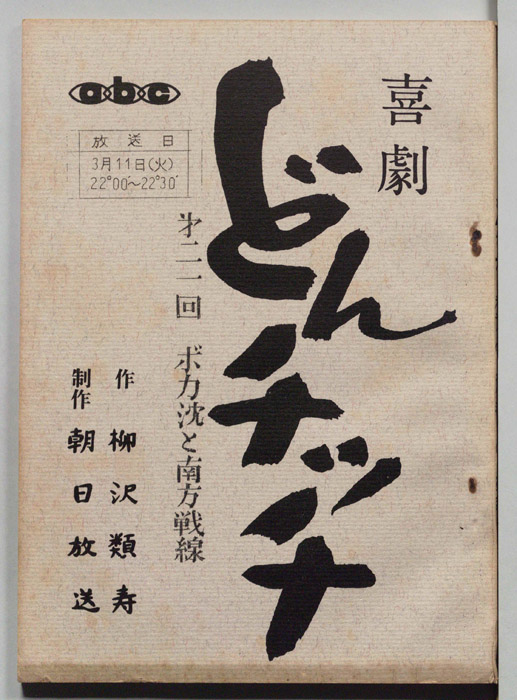 喜劇
どんチッチ
abc
放送日
3月11日(火)
22°00′~22°30′
才二一回 ボカ沈と南方戦線
作 柳沢類寿
制作 朝日放送